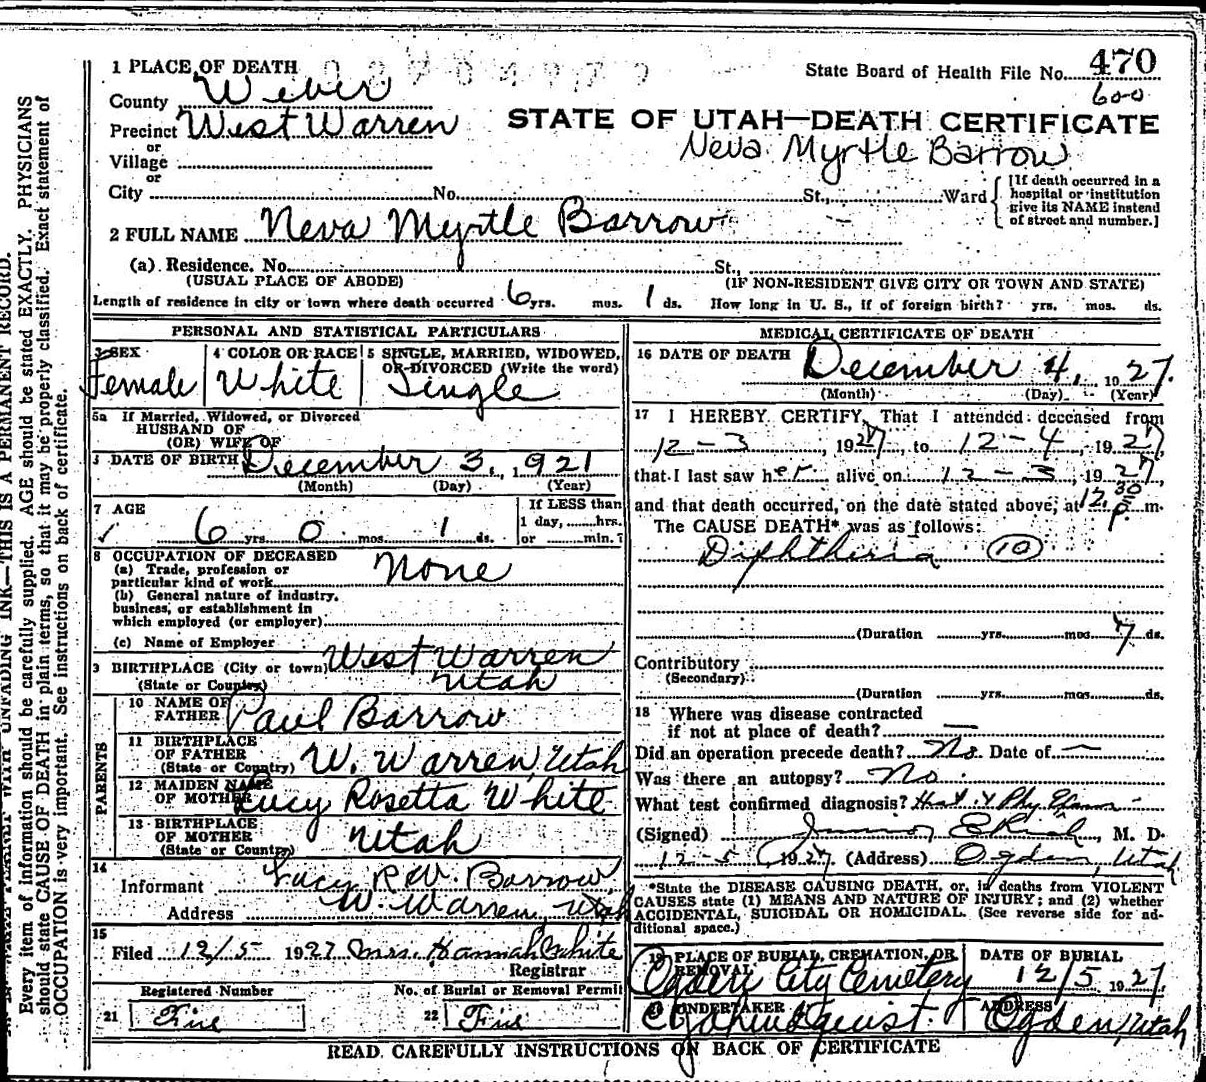 1 PLACE OF DEATH
State Board of Health File No. 470
600
County Weber
Precinct West Warren
STATE OF UTAH—DEATH CERTIFICATE
Neva Myrtle Barrow
or
Village
or
City No. St., Ward
[If death occurred in a hospital or institution give its NAME instead of street and number.]
2 FULL NAME Neva Myrtle Barrow
(a) Residence. No. St.,
(USUAL PLACE OF ABODE) (IF NON-RESIDENT GIVE CITY OR TOWN AND STATE)
Length of residence in city or town where death occurred 6 yrs. mos. 1 ds. How long in U. S., if of foreign birth? yrs. mos. ds.
PERSONAL AND STATISTICAL PARTICULARS
3 SEX 4 COLOR OR RACE 5 SINGLE, MARRIED, WIDOWED,
OR DIVORCED (Write the word)
Female White Single
5a If Married, Widowed, or Divorced
HUSBAND OF
(OR) WIFE OF
DATE OF BIRTH December 3, 1921
(Month) (Day) (Year)
7 AGE If LESS than
1 day, hrs.
6 yrs. 0 mos. 1 ds. or min.?
8 OCCUPATION OF DECEASED
(a) Trade, profession or
particular kind of work None
(b) General nature of industry,
business, or establishment in
which employed (or employer)
(c) Name of Employer
9 BIRTHPLACE (City or town) West Warren
(State or Country) Utah
PARENTS
10 NAME OF
FATHER Paul Barrow
11 BIRTHPLACE
OF FATHER
(State or Country) W. Warren, Utah
12 MAIDEN NAME
OF MOTHER Lucy Rosetta White
13 BIRTHPLACE
OF MOTHER
(State or Country) Utah
14
Informant Lucy R.W. Barrow
Address W. Warren, Utah
15
Filed 12/5 1927 Mrs. Hannah White
Registrar
Registered Number No. of Burial or Removal Permit
21 Five 22 Five
MEDICAL CERTIFICATE OF DEATH
16 DATE OF DEATH December 4, 1927.
(Month) (Day) (Year)
17 I HEREBY CERTIFY, That I attended deceased from
12-3, 1927, to 12-4, 1927,
that I last saw her alive on 12-3, 1927,
and that death occurred, on the date stated above, at 12:30 p. m.
The CAUSE DEATH* was as follows:
Diphtheria 10
(Duration yrs. mos. 7 ds.
Contributory
(Secondary)
(Duration yrs. mos. ds.
18 Where was disease contracted
if not at place of death? —
Did an operation precede death? No. Date of —
Was there an autopsy? No.
What test confirmed diagnosis? Hist. & Phy. Exam
(Signed) Junior E Rich, M. D.
12-5 1927 (Address) Ogden, Utah
*State the DISEASE CAUSING DEATH, or, in deaths from VIOLENT
CAUSES state (1) MEANS AND NATURE OF INJURY; and (2) whether
ACCIDENTAL, SUICIDAL OR HOMICIDAL. (See reverse side for ad-
ditional space.)
19 PLACE OF BURIAL, CREMATION, OR REMOVAL DATE OF BURIAL
Ogden City Cemetery 12/5 1927.
20 UNDERTAKER ADDRESS
Lindquist. Ogden, Utah
READ CAREFULLY INSTRUCTIONS ON BACK OF CERTIFICATE
INK—THIS IS A PERMANENT RECORD.
Every item of information should be carefully supplied. AGE should be stated EXACTLY. PHYSICIANS
should state CAUSE OF DEATH in plain terms, so that it may be properly classified. Exact statement of
OCCUPATION is very important. See instructions on back of certificate.